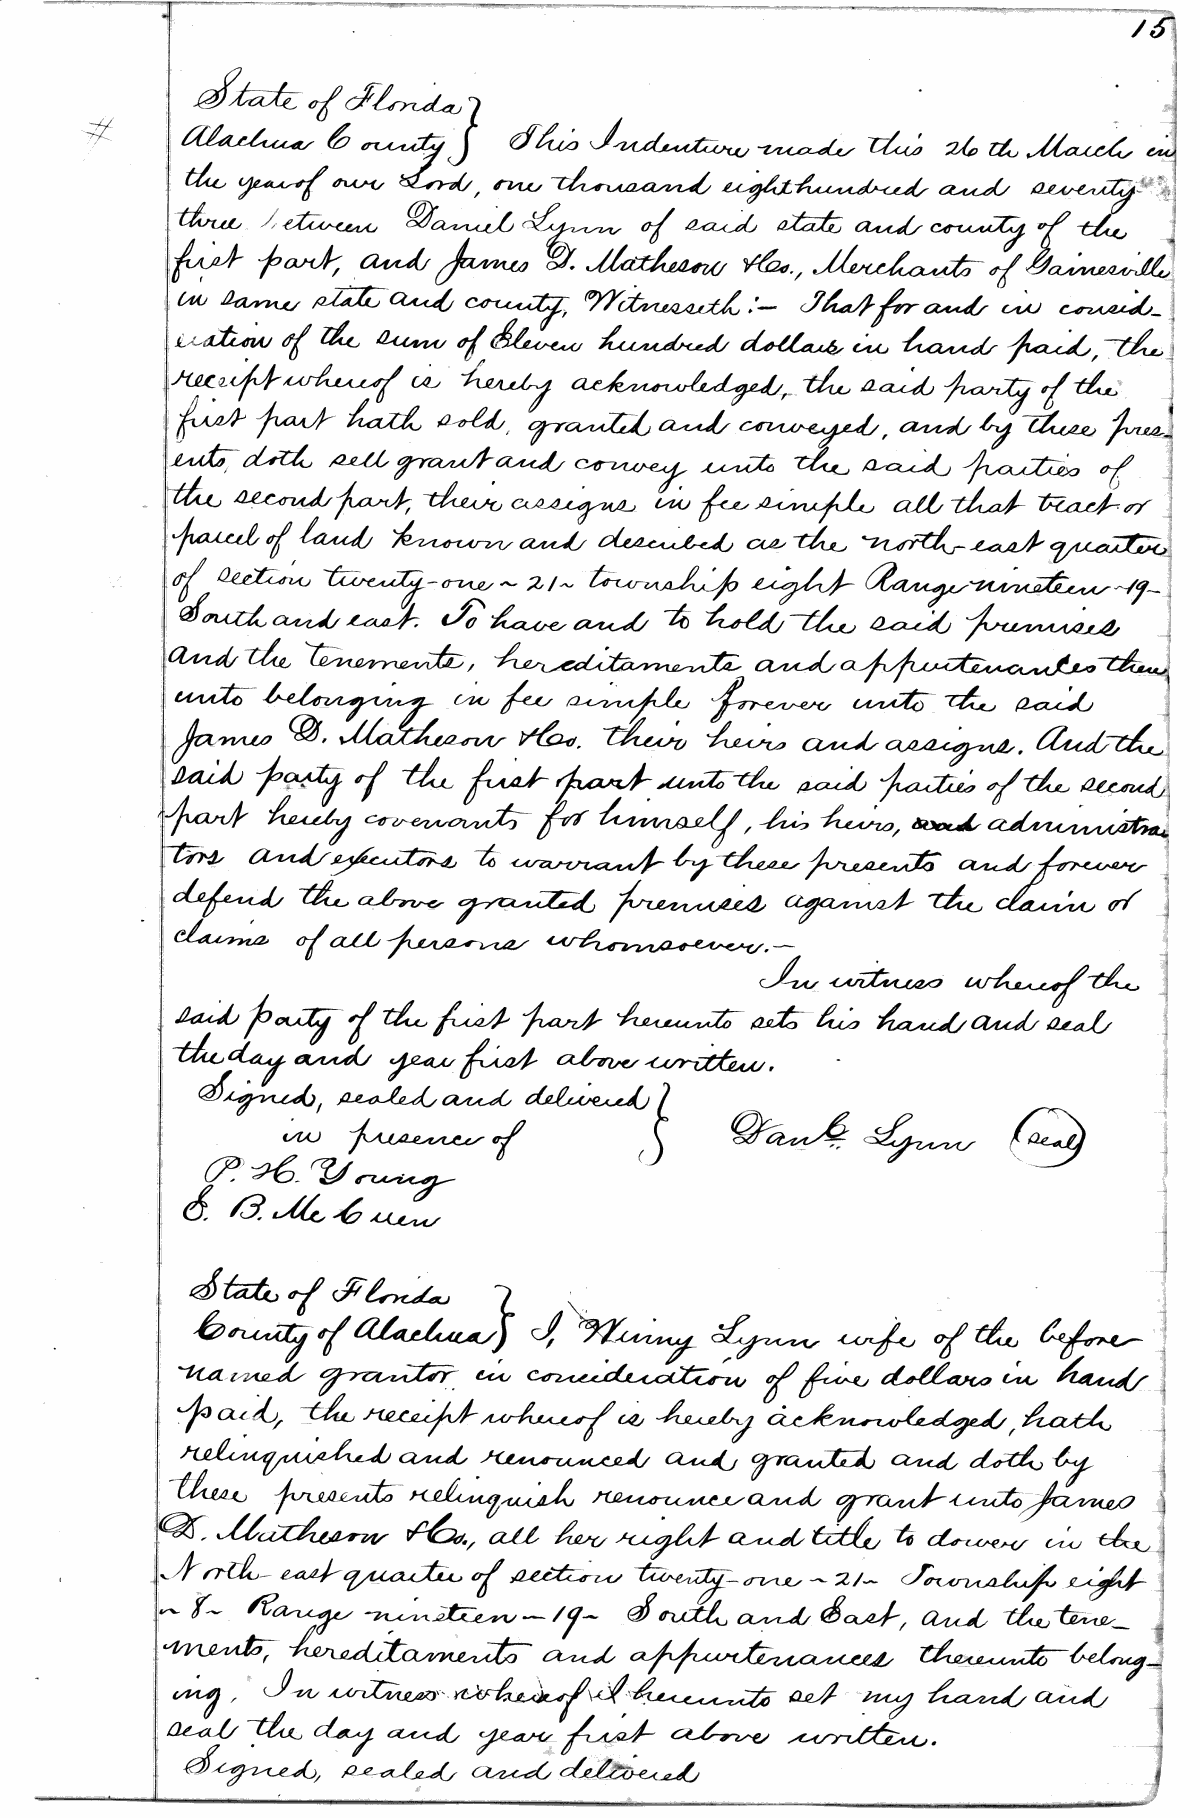 15
State of Florida }
# Alachua County } This Indenture made this 26th March in
the year of our Lord, one thousand eight hundred and seventy
three between Daniel Lynn of said state and county of the
first part, and James D. Matheson & Co., Merchants of Gainesville
in same state and county, Witnesseth:- That for and in consid-
eration of the sum of Eleven hundred dollars in hand paid, the
receipt whereof is hereby acknowledged, the said party of the
first part hath sold, granted and conveyed, and by these pres-
ents, doth sell grant and convey unto the said parties of
the second part, their assigns in fee simple all that tract or
parcel of land known and described as the north-east quarter
of section twenty-one ~ 21 ~ township eight Range nineteen -19-
South and east. To have and to hold the said premises
and the tenements, hereditaments and appurtenances there
unto belonging in fee simple forever unto the said
James D. Matheson & Co. their heirs and assigns. And the
said party of the first part unto the said parties of the second
part hereby covenants for himself, his heirs, and administra
tors and executors to warrant by these presents and forever
defend the above granted premises against the claim or
claims of all persons whomsoever.-
In witness whereof the
said party of the first part hereunto sets his hand and seal
the day and year first above written.
Signed, sealed and delivered }
in presence of } Danl. Lynn (seal)
P. H. Young
E. B. McCuen
State of Florida }
County of Alachua } I, Winny Lynn wife of the before
named grantor in consideration of five dollars in hand
paid, the receipt whereof is hereby acknowledged, hath
relinquished and renounced and granted and doth by
these presents relinquish renounce and grant unto James
D. Matheson & Co., all her right and title to dower in the
North-east quarter of section twenty-one ~ 21 ~ Township eight
~ 8 ~ Range nineteen - 19 ~ South and East, and the tene-
ments, hereditaments and appurtenances thereunto belong-
ing. In witness whereof I hereunto set my hand and
seal the day and year first above written.
Signed, sealed and delivered